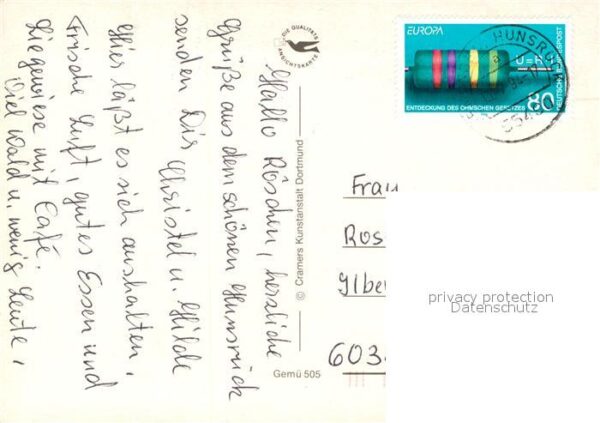 Hallo Röschen, herzliche
Grüße aus dem schönen Hunsrück
senden Dir Christel u. Hilde
Hier läßt es sich aushalten,
Frische Luft, gutes Essen und
Liegewiese mit Café.
Viel Wald u. wenig Leute,
DIE QUALITÄTS
ANSICHTSKARTE
© Cramers Kunstanstalt Dortmund
Gemü 505
EUROPA
ENTDECKUNG DES OHMSCHEN GESETZES
80
DEUTSCHE BUNDESPOST
HUNSR
Frau
Ros
Ilbe
603
privacy protection
Datenschutz